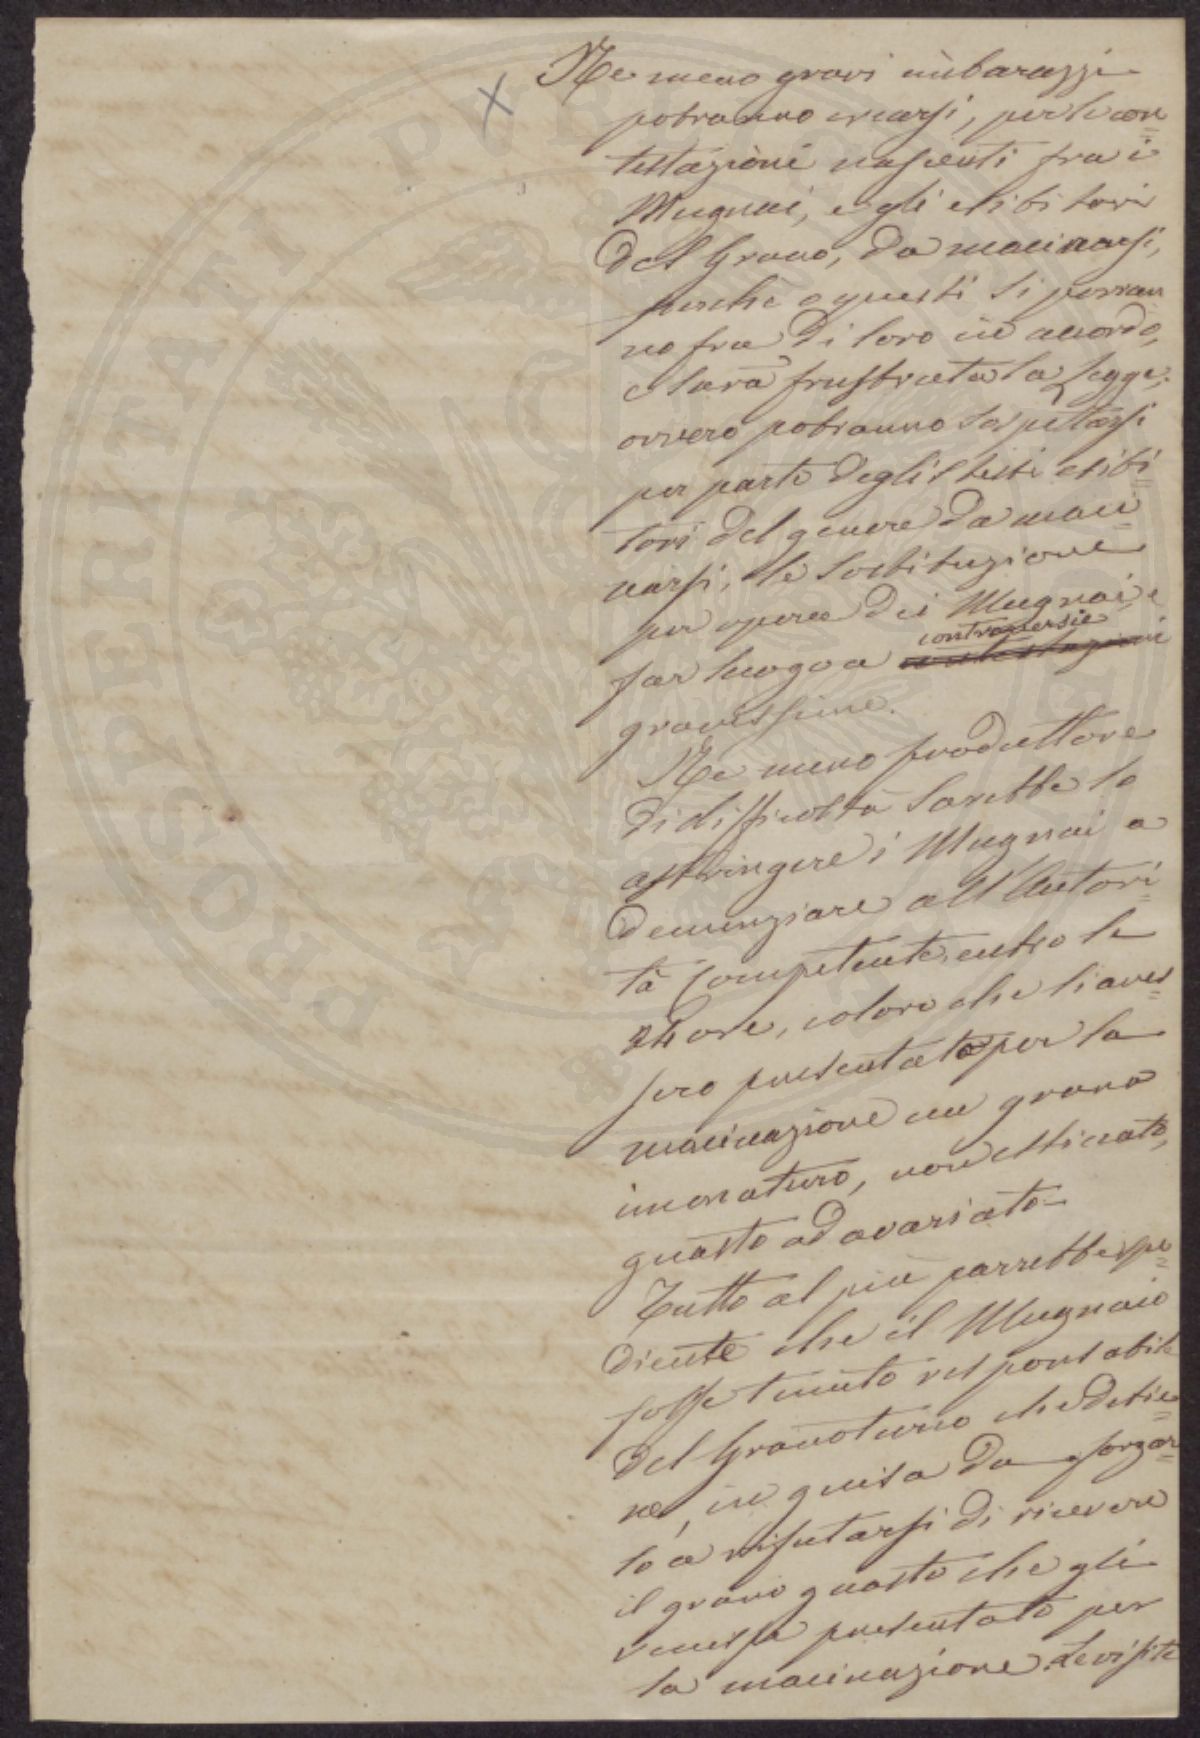 Ne meno gravi imbarazzi
potranno crearsi, per le con=
testazioni nascenti fra i
Mugnai, e gli esibitori
del Grano, da macinarsi,
perche o questi si porran
no fra di loro in accordo,
e sarà frustrata la legge;
ovvero potranno sospettarsi
per parte degli stessi esibi=
tori del genere da maci=
narsi, le sostituzione
per opera dei Mugnai, e
far luogo a controversie
gravissime.
Ne meno produttore
di difficoltà sarebbe lo
astringere i Mugnai a
denunziare all'Autori=
tà Competente, entro le
24 ore, coloro che li aves=
sero presentato per la
macinazione un grano
immaturo, non essiccato,
guasto ad avariato.
Tutto al più parrebbe spe=
diente che il Mugnaio
fosse tenuto responsabile
del Granoturco che detie=
ne, in guisa da sforzar=
lo a rifiutarsi di ricevere
il grano guasto che gli
venisse presentato per
la macinazione. Le visite
PROSPERITATI PVBLICAE